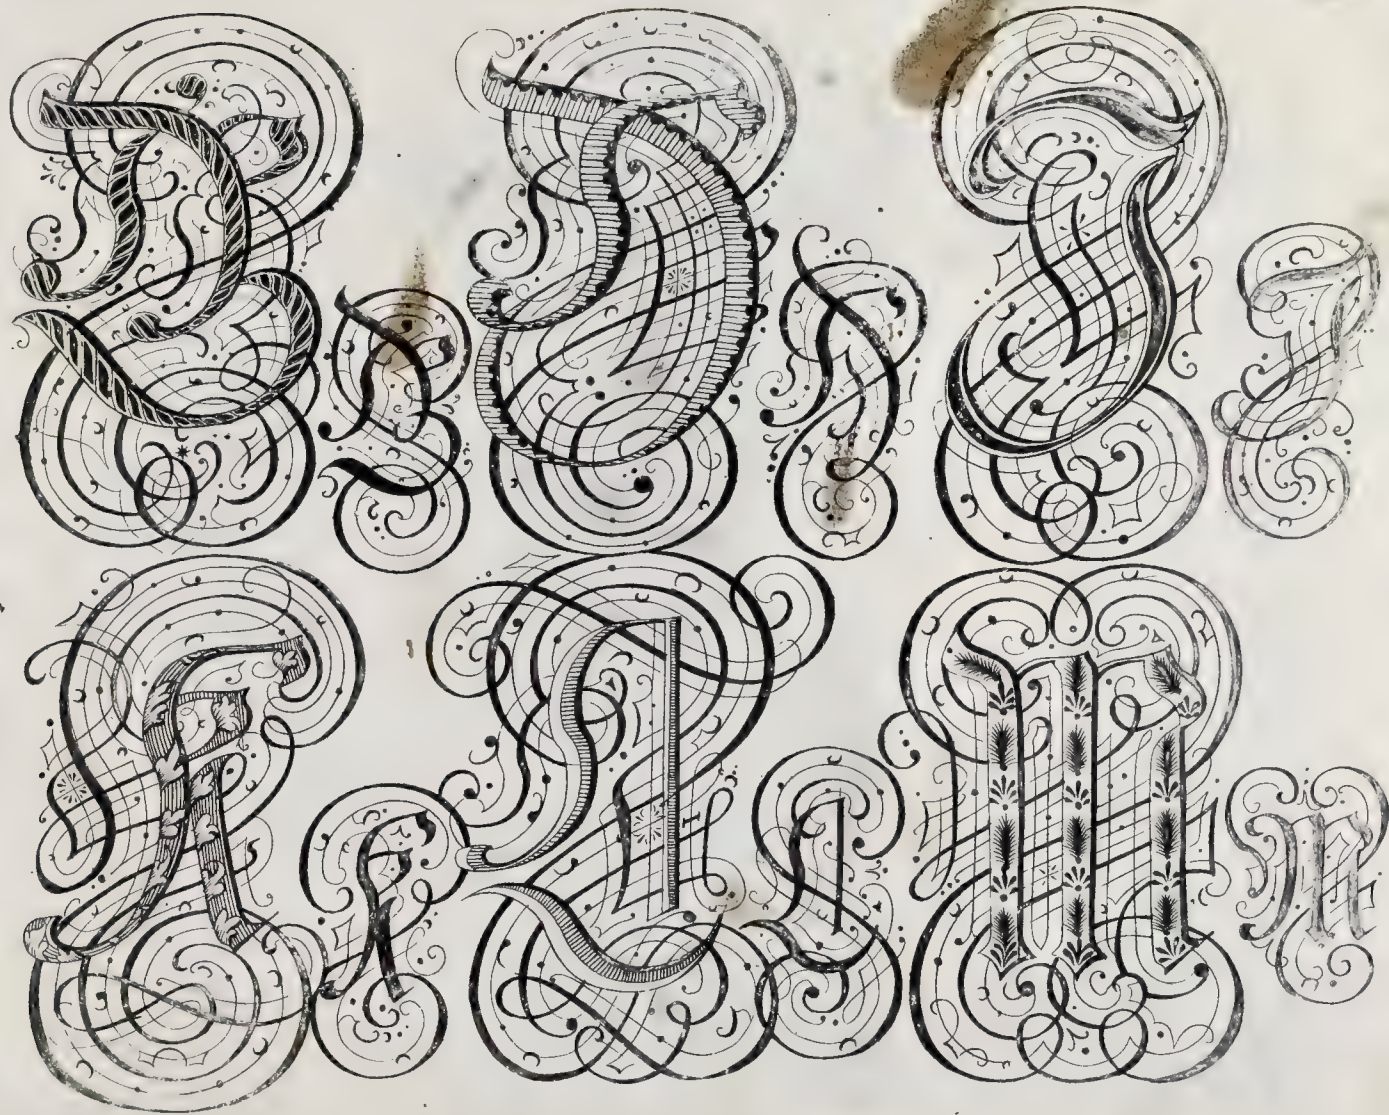 G G H H J J
K K L L M M